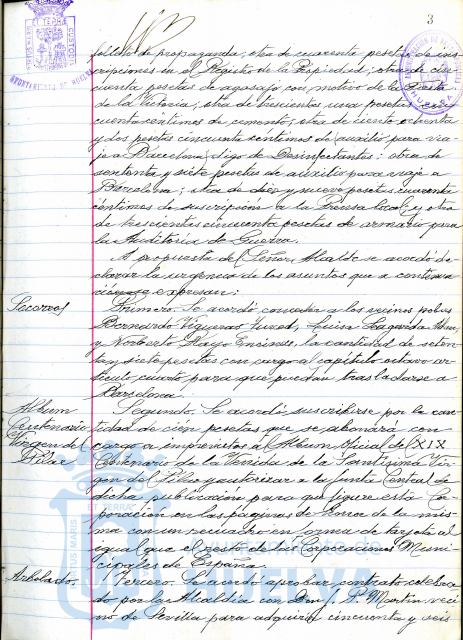 3
folleto de propaganda; otra de cuarenta pesetas de ins-
cripciones en el Registro de la Propiedad; otra de cin-
cuenta pesetas de agasajo con motivo de la Fiesta
de la Victoria; otra de trescientas una pesetas
cuenta céntimos de cemento; otra de ciento ochenta
y dos pesetas cincuenta céntimos de auxilio para via-
je a Barcelona, digo de Desinfectantes; otra de
setenta y siete pesetas de auxilio para viaje a
Barcelona; otra de diez y nueve pesetas cuarenta
céntimos de suscripción a la Prensa local; y otra
de trescientas cincuenta pesetas de armario para
la Auditoría de Guerra.
A propuesta del Señor Alcalde se acordó de-
clarar la urgencia de los asuntos que a continua-
ción se expresan:
Socorros
Primero. Se acordó conceder a los vecinos pobres
Bernardo Vigueras Luisa
y Norberto Mayo la cantidad de seten-
ta y siete pesetas con cargo al capítulo octavo ar-
tículo cuarto para que puedan trasladarse a
Barcelona.
Album
Centenario
Virgen del
Pilar
Segundo. Se acordó suscribirse por la can-
tidad de cien pesetas que se abonará con
cargo a imprevistos al Album Oficial del XIX
Centenario de la Venida de la Santísima Vir-
gen del Pilar y autorizar a la Junta Central de
dicha publicación para que figure esta Cor-
poración en las páginas de Honor de la mis-
ma con un recuadro en forma de tarjeta al
igual que el resto de las Corporaciones Muni-
cipales de España.
Arbolado.
Tercero. Se acordó aprobar contrato celebra-
do por la Alcaldía con Don J. P. Martin veci-
no de Sevilla para adquirir cincuenta y seis